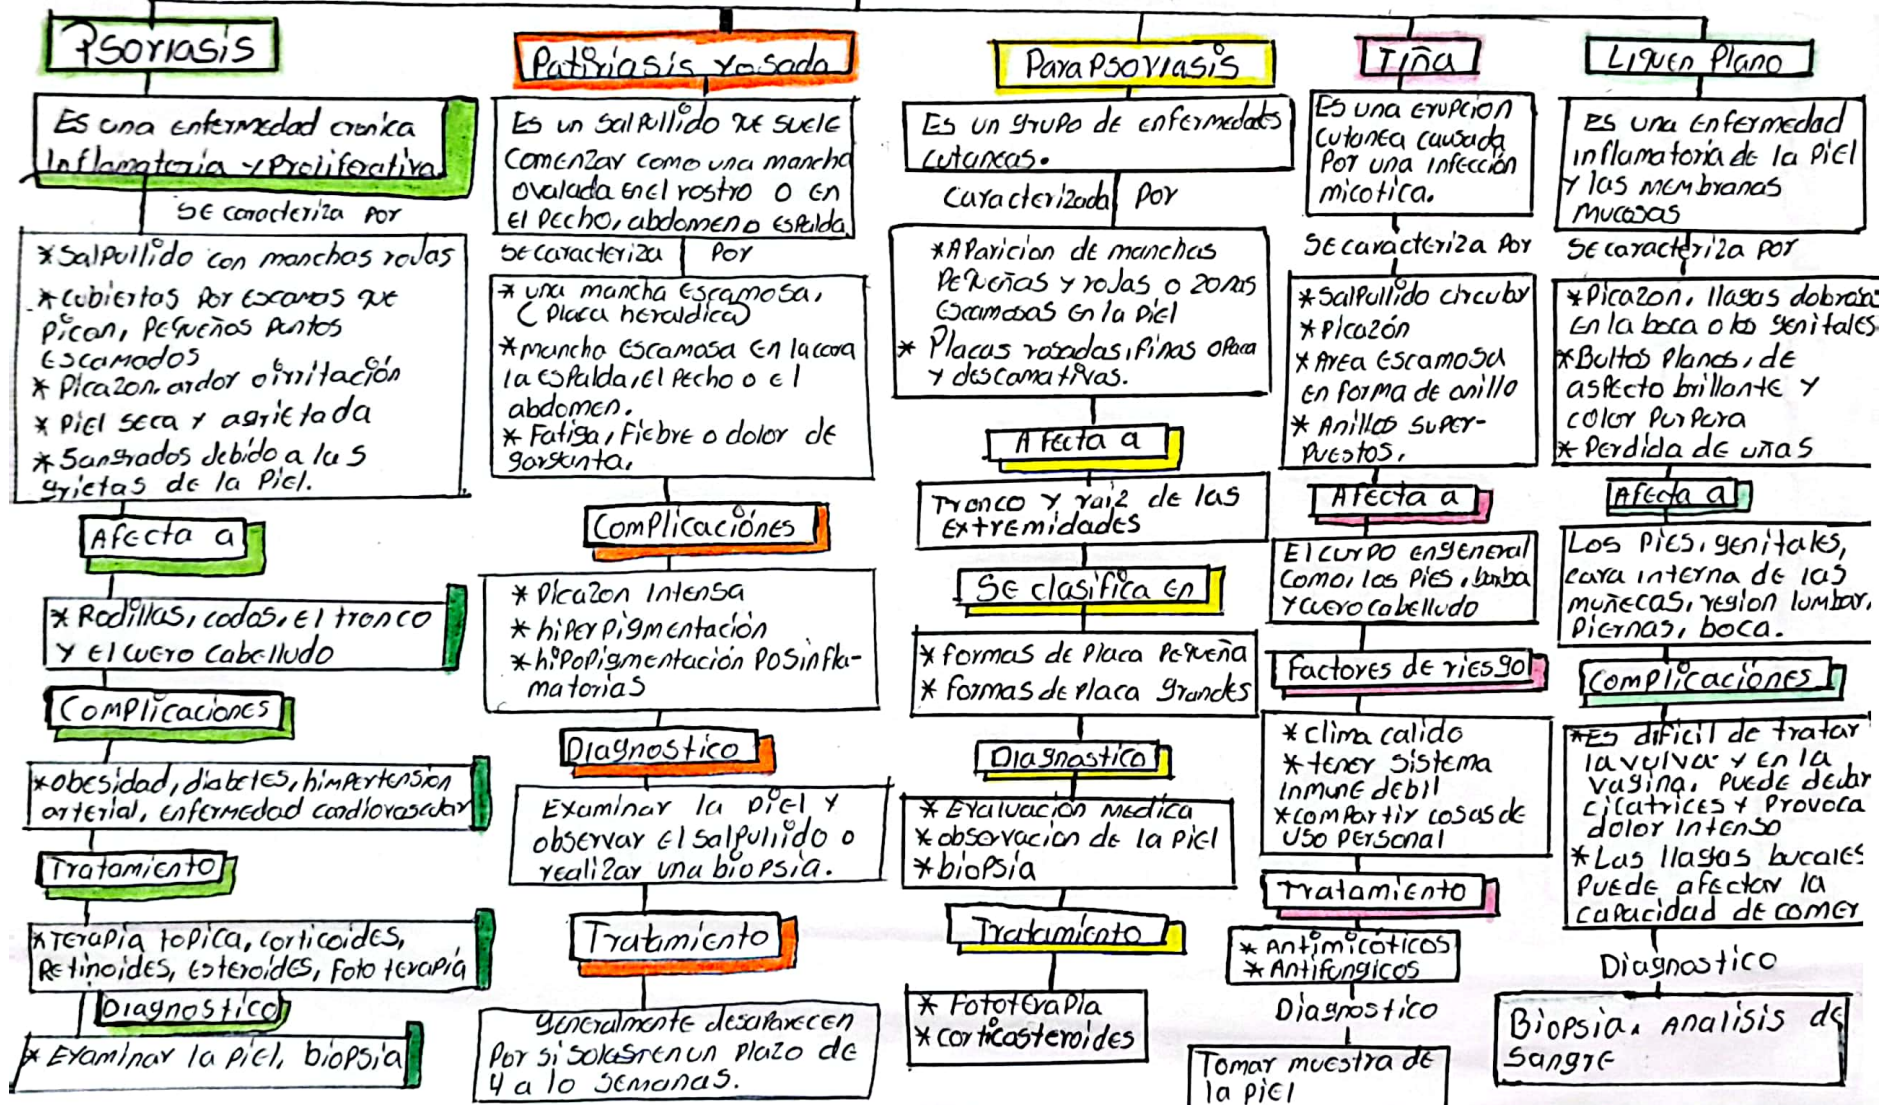 Psoriasis
Es una enfermedad cronica
Inflamatoria y Proliferativa
Se caracteriza por
* Salpullido con manchas rojas
* cubiertas por escamas que
pican, pequeños puntos
escamados
* Picazon, ardor o irritación
* Piel seca y agrietada
* Sangrados debido a las
grietas de la Piel.
Afecta a
* Rodillas, codos, el tronco
y el cuero cabelludo
Complicaciones
* obesidad, diabetes, himpertensión
arterial, enfermedad cardiovascular
Tratamiento
* Terapia topica, corticoides,
Retinoides, esteroides, Foto terapia
Diagnostico
* Examinar la piel, biopsia
Patiriasis rosada
Es un salpullido que suele
comenzar como una mancha
ovalada en el rostro o en
el pecho, abdomen o espalda
Se caracteriza por
* una mancha escamosa,
(placa heraldica)
* mancha escamosa en la cara
la espalda, el pecho o el
abdomen.
* Fatiga, fiebre o dolor de
garganta.
Complicaciónes
* Picazon intensa
* hiperpigmentación
* hipopigmentación posinfla-
matorias
Diagnostico
Examinar la piel y
observar el salpullido o
realizar una biopsia.
Tratamiento
generalmente desaparecen
por si solas en un plazo de
4 a 10 semanas.
Parapsoriasis
Es un grupo de enfermedades
cutaneas.
Caracterizada por
* Aparicion de manchas
pequeñas y rojas o zonas
escamosas en la piel
* Placas rosadas, finas opaca
y descamativas.
Afecta a
Tronco y raiz de las
extremidades
Se clasifica en
* formas de placa pequeña
* formas de placa grandes
Diagnostico
* Evaluación medica
* observacion de la piel
* biopsia
Tratamiento
* Fototerapia
* corticosteroides
Tiña
Es una erupcion
cutanea causada
Por una infección
micotica.
Se caracteriza por
* Salpullido circular
* picazón
* Area escamosa
en forma de anillo
* Anillos super-
puestos.
Afecta a
El curpo engeneral
como, los pies, barba
y cuero cabelludo
Factores de riesgo
* clima calido
* tener sistema
inmune debil
* compartir cosas de
uso personal
Tratamiento
* Antimicóticos
* Antifungicos
Diagnostico
Tomar muestra de
la piel
Liquen Plano
Es una enfermedad
inflamatoria de la piel
y las membranas
mucosas
Se caracteriza por
* Picazon, llagas dobrosas
en la boca o los genitales
* Bultos planos, de
aspecto brillante y
color purpura
* Perdida de uñas
Afecta a
Los pies, genitales,
cara interna de las
muñecas, region lumbar,
piernas, boca.
Complicaciónes
* Es dificil de tratar
la vulva y en la
vagina, puede dejar
cicatrices y provoca
dolor intenso
* Las llagas bucales
puede afectar la
capacidad de comer
Diagnostico
Biopsia, analisis de
Sangre